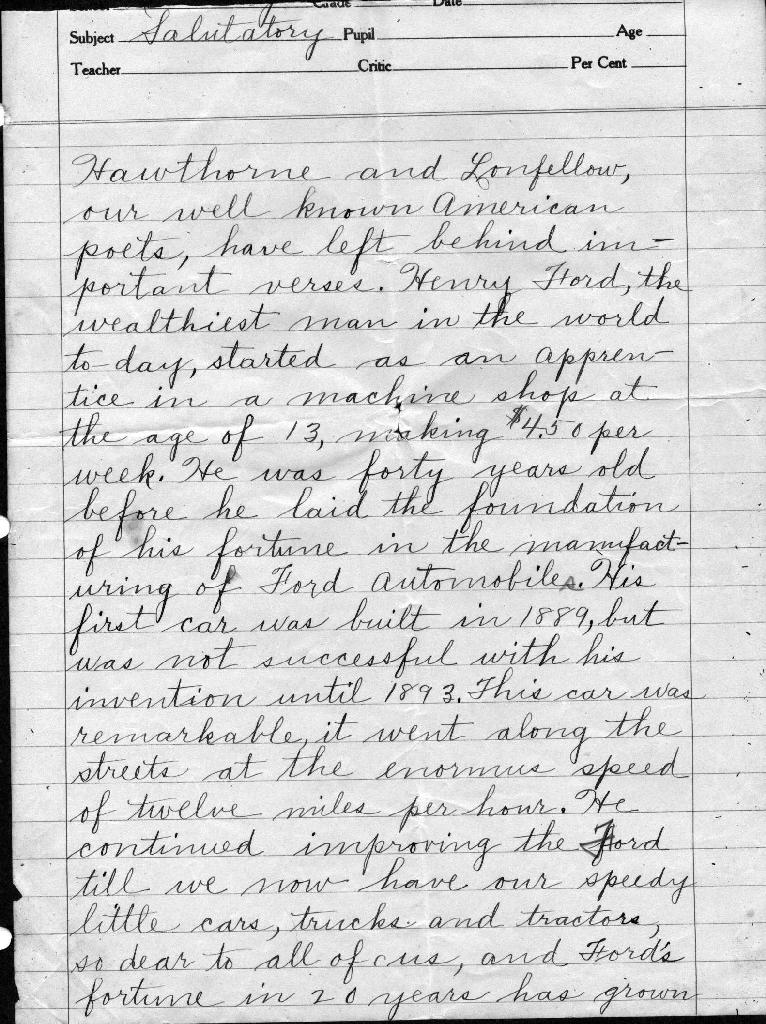 Grade Date
Subject Salutatory Pupil Age
Teacher Critic Per Cent
Hawthorne and Lonfellow,
our well known American
poets, have left behind im-
portant verses. Henry Ford, the
wealthiest man in the world
to-day, started as an appren-
tice in a machine shop at
the age of 13, making $4.50 per
week. He was forty years old
before he laid the foundation
of his fortune in the manufact-
uring of Ford Automobiles. His
first car was built in 1889, but
was not successful with his
invention until 1893. This car was
remarkable, it went along the
streets at the enormus speed
of twelve miles per hour. He
continued improving the Ford
till we now have our speedy
little cars, trucks and tractors,
so dear to all of us, and Ford's
fortune in 20 years has grown